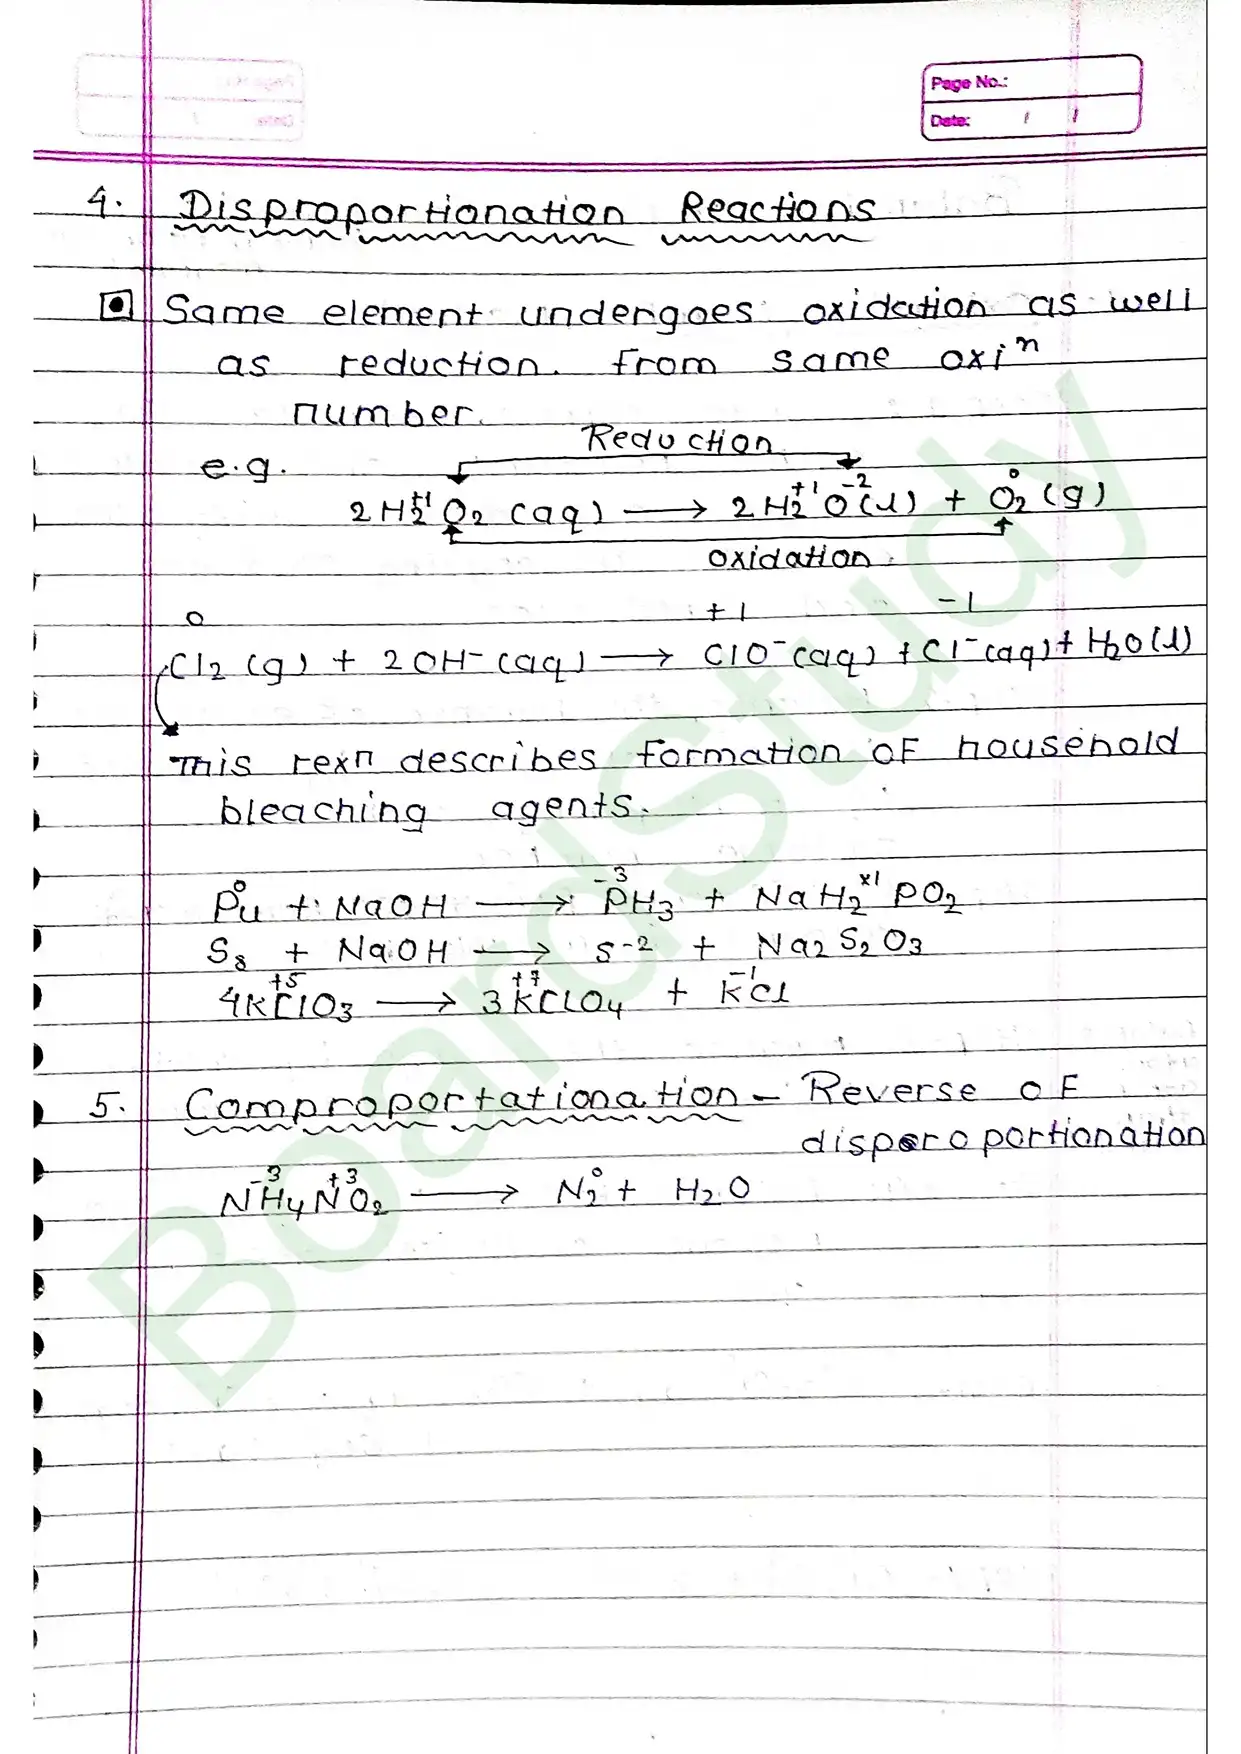 Page No.:
Date: / /
4. Disproportionation Reactions
Same element undergoes oxidation as well
as reduction. from same oxiⁿ
number.
Reduction
e.g.
+1 +1 -2 0
2H₂O₂ (aq) → 2H₂O(l) + O₂ (g)
oxidation.
0 +1 -1
Cl₂ (g) + 2OH⁻ (aq) → ClO⁻ (aq) + Cl⁻ (aq) + H₂O(l)
This rexn describes formation of household
bleaching agents.
0 -3 +1
P₄ + NaOH → PH₃ + NaH₂PO₂
S₈ + NaOH → S⁻² + Na₂S₂O₃
+5 +7 -1
4KClO₃ → 3KClO₄ + KCl
5. Comproportationation - Reverse of
disproportionation
-3 +3 0
NH₄NO₂ → N₂ + H₂O
BoardStudy